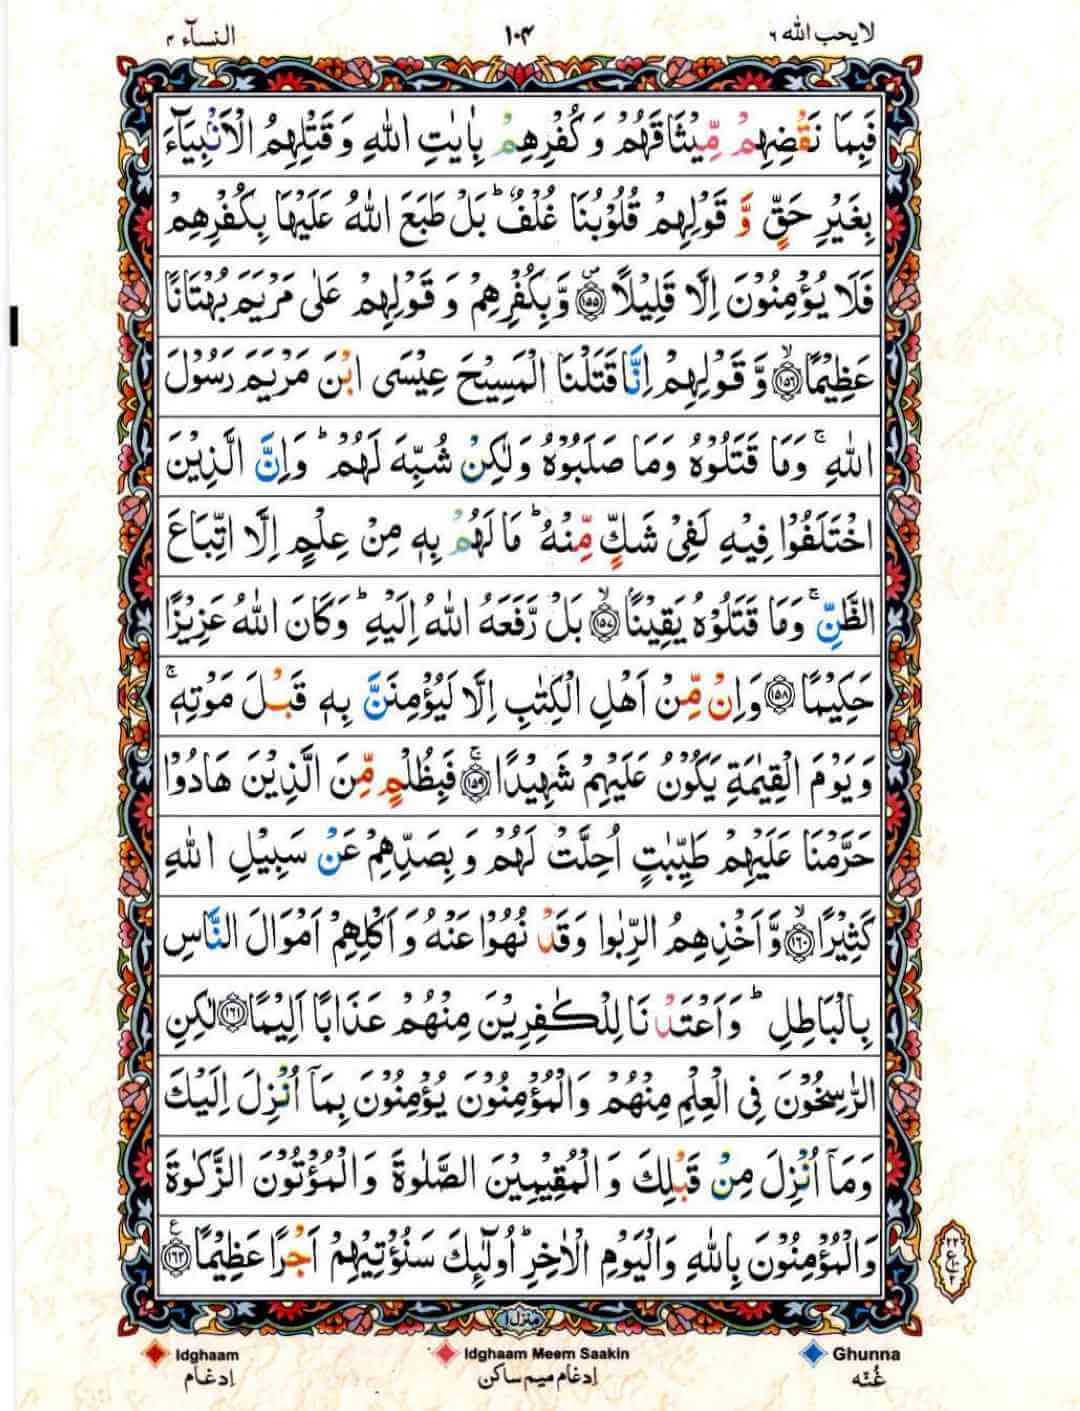 لايحب الله ٦ ١٠٤ النسآء ٤
فَبِمَا نَقْضِهِمْ مِّيْثَاقَهُمْ وَ كُفْرِهِمْ بِاٰيٰتِ اللّٰهِ وَ قَتْلِهِمُ الْاَنْۢبِيَآءَ
بِغَيْرِ حَقٍّ وَّ قَوْلِهِمْ قُلُوْبُنَا غُلْفٌ ؕ بَلْ طَبَعَ اللّٰهُ عَلَيْهَا بِكُفْرِهِمْ
فَلَا يُؤْمِنُوْنَ اِلَّا قَلِيْلًا ۪﴿۱۵۵﴾ وَّ بِكُفْرِهِمْ وَ قَوْلِهِمْ عَلٰى مَرْيَمَ بُهْتَانًا
عَظِيْمًا ۙ﴿۱۵۶﴾ وَّ قَوْلِهِمْ اِنَّا قَتَلْنَا الْمَسِيْحَ عِيْسَى ابْنَ مَرْيَمَ رَسُوْلَ
اللّٰهِ ۚ وَمَا قَتَلُوْهُ وَمَا صَلَبُوْهُ وَلٰكِنْ شُبِّهَ لَهُمْ ؕ وَاِنَّ الَّذِيْنَ
اخْتَلَفُوْا فِيْهِ لَفِيْ شَكٍّ مِّنْهُ ؕ مَا لَهُمْ بِهٖ مِنْ عِلْمٍ اِلَّا اتِّبَاعَ
الظَّنِّ ۚ وَمَا قَتَلُوْهُ يَقِيْنًا ۙ﴿۱۵۷﴾ بَلْ رَّفَعَهُ اللّٰهُ اِلَيْهِ ؕ وَكَانَ اللّٰهُ عَزِيْزًا
حَكِيْمًا ﴿۱۵۸﴾ وَاِنْ مِّنْ اَهْلِ الْكِتٰبِ اِلَّا لَيُؤْمِنَنَّ بِهٖ قَبْلَ مَوْتِهٖ ۚ
وَيَوْمَ الْقِيٰمَةِ يَكُوْنُ عَلَيْهِمْ شَهِيْدًا ۚ﴿۱۵۹﴾ فَبِظُلْمٍ مِّنَ الَّذِيْنَ هَادُوْا
حَرَّمْنَا عَلَيْهِمْ طَيِّبٰتٍ اُحِلَّتْ لَهُمْ وَ بِصَدِّهِمْ عَنْ سَبِيْلِ اللّٰهِ
كَثِيْرًا ۙ﴿۱۶۰﴾ وَّ اَخْذِهِمُ الرِّبٰوا وَقَدْ نُهُوْا عَنْهُ وَ اَكْلِهِمْ اَمْوَالَ النَّاسِ
بِالْبَاطِلِ ؕ وَاَعْتَدْنَا لِلْكٰفِرِيْنَ مِنْهُمْ عَذَابًا اَلِيْمًا ﴿۱۶۱﴾ لٰكِنِ
الرّٰسِخُوْنَ فِي الْعِلْمِ مِنْهُمْ وَالْمُؤْمِنُوْنَ يُؤْمِنُوْنَ بِمَاۤ اُنْزِلَ اِلَيْكَ
وَمَاۤ اُنْزِلَ مِنْ قَبْلِكَ وَ الْمُقِيْمِيْنَ الصَّلٰوةَ وَ الْمُؤْتُوْنَ الزَّكٰوةَ
وَ الْمُؤْمِنُوْنَ بِاللّٰهِ وَ الْيَوْمِ الْاٰخِرِ ؕ اُولٰٓئِكَ سَنُؤْتِيْهِمْ اَجْرًا عَظِيْمًا ﴿۱۶۲﴾ ع
منزل ١
Idghaam Idghaam Meem Saakin Ghunna
اِدغام اِدغام میم ساکن غُنّه